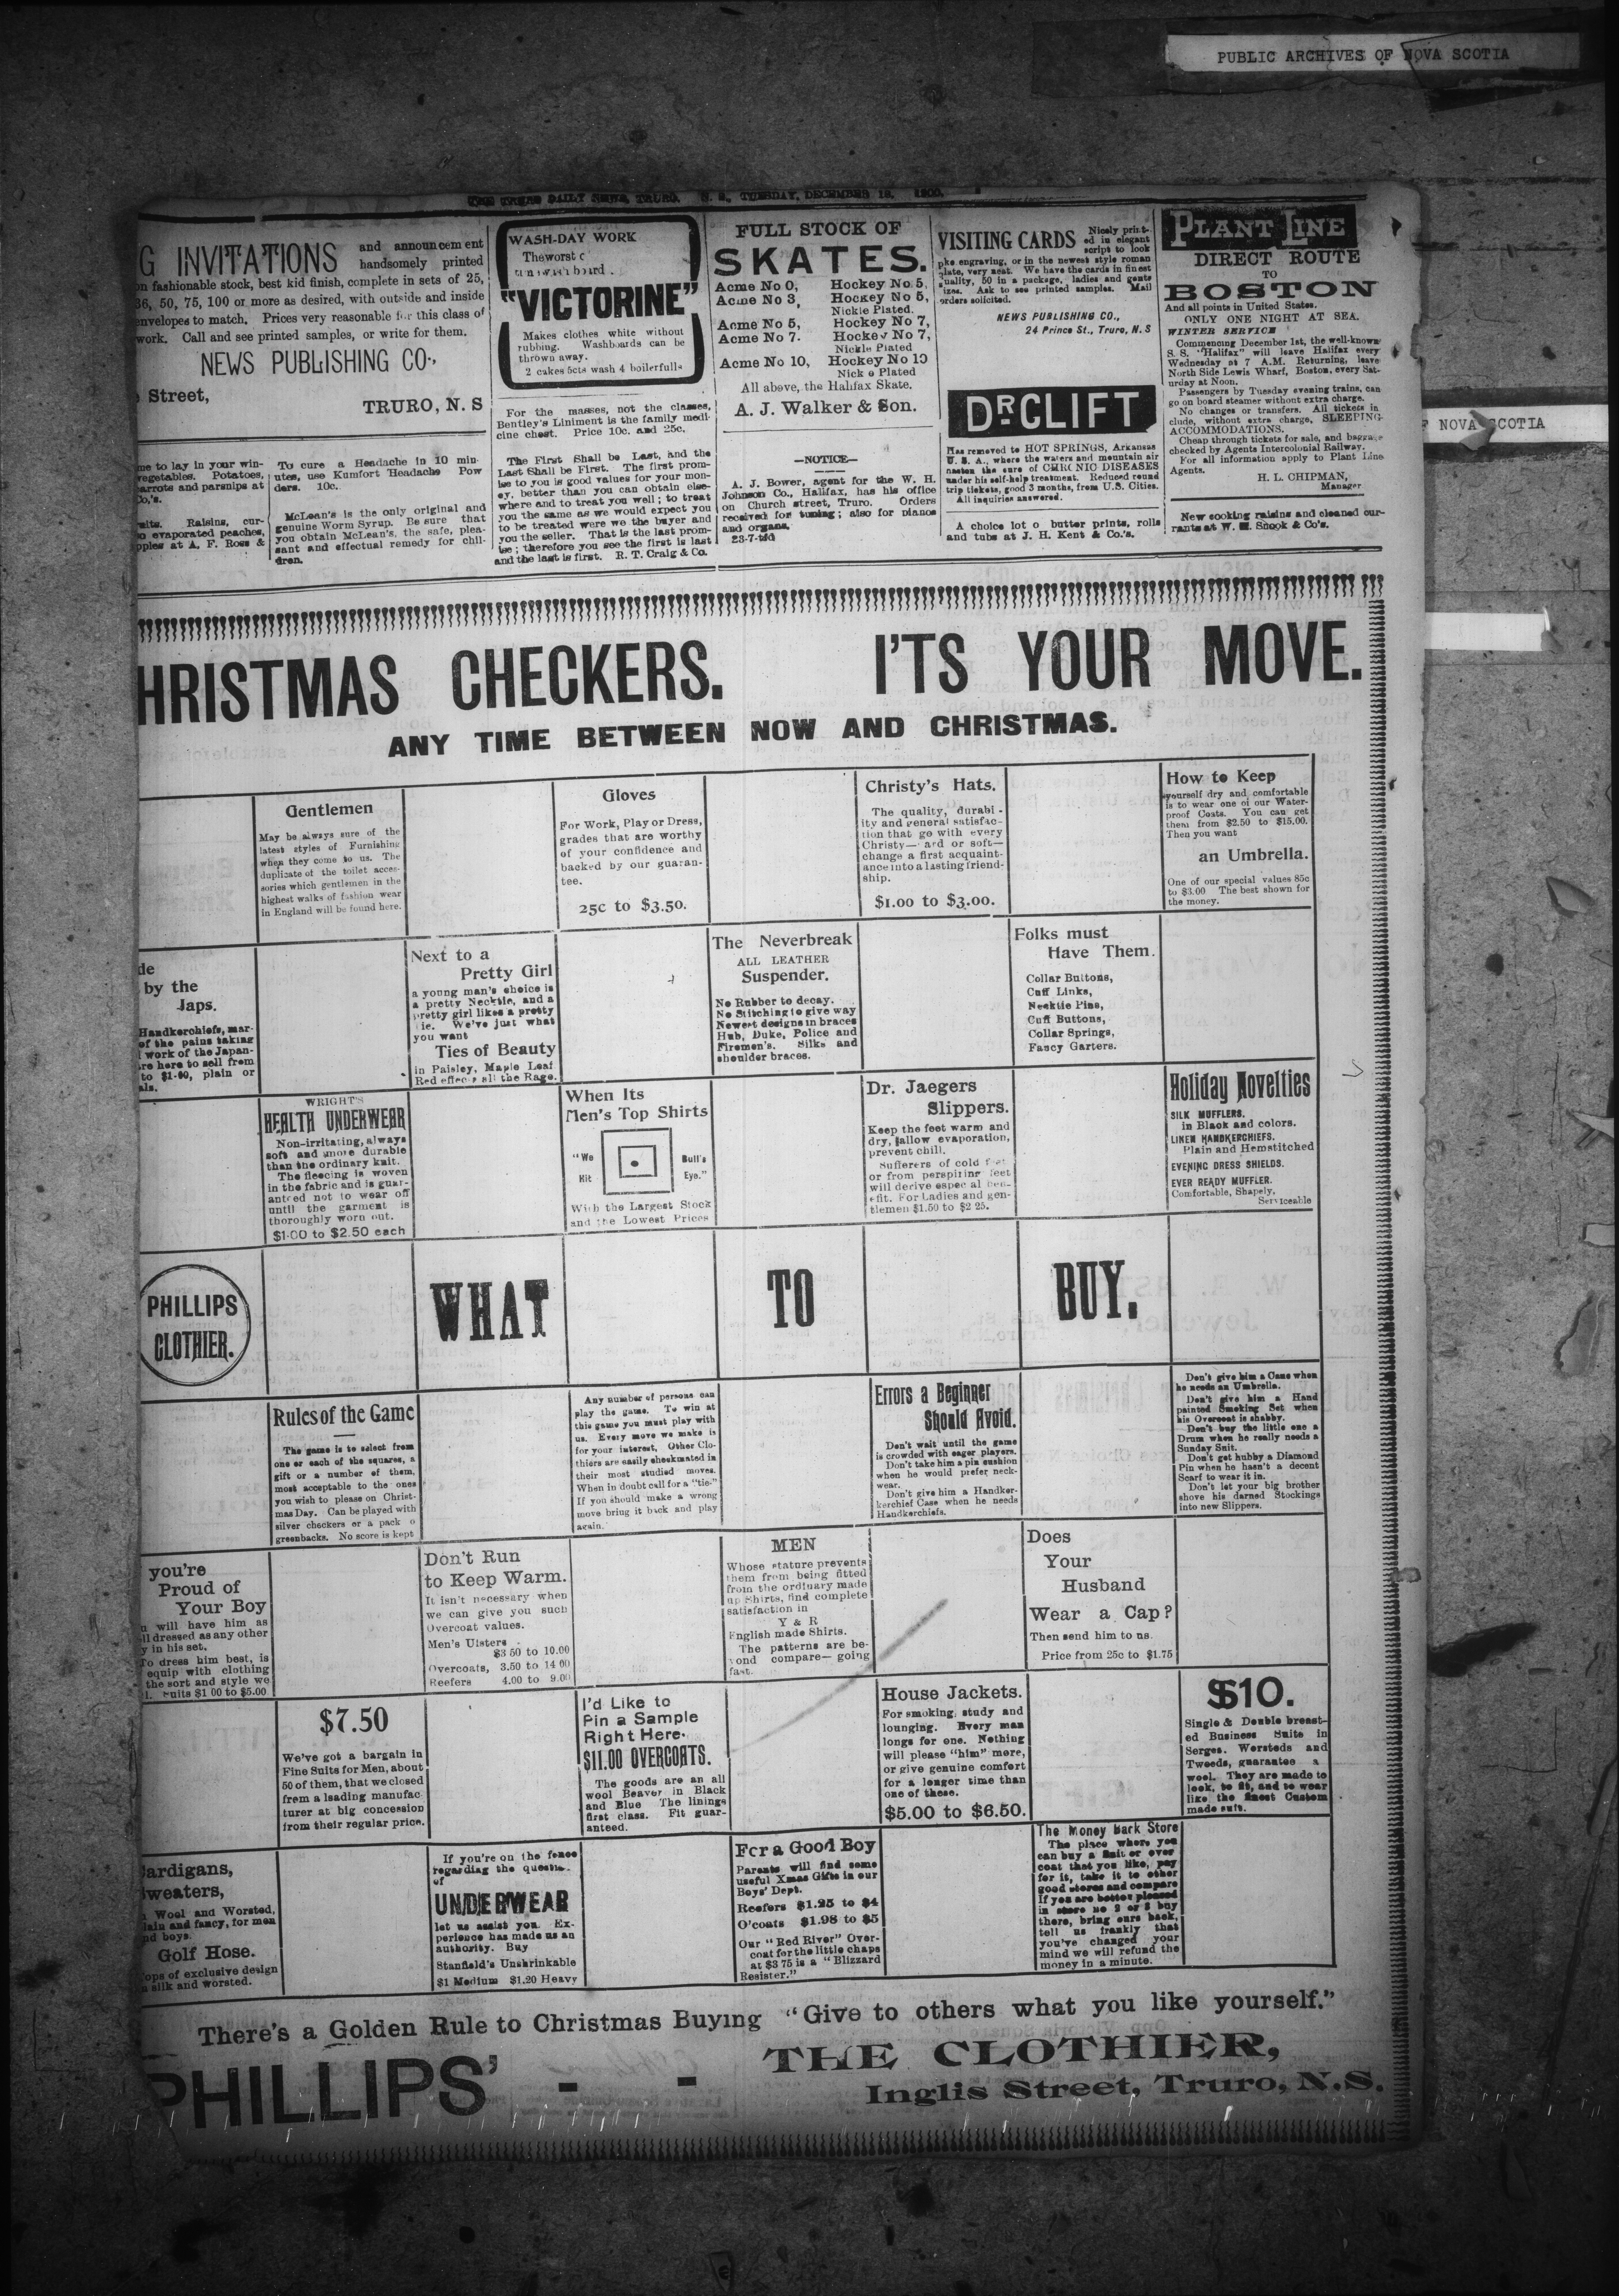 PUBLIC ARCHIVES OF NOVA SCOTIA
THE TRURO DAILY NEWS, TRURO, N. S., TUESDAY, DECEMBER 18, 1900.
G INVITATIONS and announcement
handsomely printed
on fashionable stock, best kid finish, complete in sets of 25,
36, 50, 75, 100 or more as desired, with outside and inside
envelopes to match. Prices very reasonable for this class of
work. Call and see printed samples, or write for them.
NEWS PUBLISHING CO.,
Street,
TRURO, N. S
me to lay in your win-
vegetables. Potatoes,
arrots and parsnips at
Co,'s.
Raisins, cur-
evaporated peaches,
pples at A. F. Ross &
To cure a Headache in 10 min
utes, use Kumfort Headache Pow
ders. 10c.
McLean's is the only original and
genuine Worm Syrup. Be sure that
you obtain McLean's, the safe, plea-
sant and effectual remedy for chil-
dren.
WASH-DAY WORK
The worst c
"VICTORINE"
Makes clothes white without
rubbing. Washboards can be
thrown away.
2 cakes 5cts wash 4 boilerfulls
For the masses, not the classes,
Bentley's Liniment is the family medi-
cine chest. Price 10c. and 25c.
The First Shall be Last, and the
Last Shall be First. The first prom-
ise to you is good values for your mon-
ey, better than you can obtain else-
where and to treat you well; to treat
you the same as we would expect you
to be treated were we the buyer and
you the seller. That is the last prom-
ise; therefore you see the first is last
and the last is first. R. T. Craig & Co.
FULL STOCK OF
SKATES.
Acme No 0, Hockey No 5,
Acme No 3, Hockey No 5,
Nickle Plated.
Acme No 5, Hockey No 7,
Acme No 7. Hockey No 7,
Nickle Plated
Acme No 10, Hockey No 10
Nick e Plated
All above, the Halifax Skate.
A. J. Walker & Son.
—NOTICE—
A. J. Bower, agent for the W. H.
Johnson Co., Halifax, has his office
on Church street, Truro. Orders
received for tuning; also for pianos
and organs.
23-7-tfd
VISITING CARDS Nicely print-
ed in elegant
script to look
like engraving, or in the newest style roman
plate, very neat. We have the cards in finest
quality, 50 in a package, ladies and gents
izes. Ask to see printed samples. Mail
orders solicited.
NEWS PUBLISHING CO.,
24 Prince St., Truro, N. S
DR. CLIFT
Has removed to HOT SPRINGS, Arkansas
U. S. A., where the waters and mountain air
hasten the cure of CHRONIC DISEASES
under his self-help treatment. Reduced round
trip tickets, good 3 months, from U.S. Cities.
All inquiries answered.
A choice lot o butter prints, rolls
and tubs at J. H. Kent & Co.'s.
PLANT LINE
DIRECT ROUTE
TO
BOSTON
And all points in United States.
ONLY ONE NIGHT AT SEA.
WINTER SERVICE
Commencing December 1st, the well-known
S. S. "Halifax" will leave Halifax every
Wednesday at 7 A.M. Returning, leave
North Side Lewis Wharf, Boston, every Sat-
urday at Noon.
Passengers by Tuesday evening trains, can
go on board steamer without extra charge.
No changes or transfers. All tickets in
clude, without extra charge, SLEEPING
ACCOMMODATIONS.
Cheap through tickets for sale, and baggage
checked by Agents Intercolonial Railway.
For all information apply to Plant Line
Agents.
H. L. CHIPMAN,
Manager
New cooking raisins and cleaned cur-
rants at W. H. Snook & Co's.
F NOVA SCOTIA
HRISTMAS CHECKERS. I'TS YOUR MOVE.
ANY TIME BETWEEN NOW AND CHRISTMAS.
Gentlemen
May be always sure of the
latest styles of Furnishing
when they come to us. The
duplicate of the toilet acces-
sories which gentlemen in the
highest walks of fashion wear
in England will be found here.
Gloves
For Work, Play or Dress,
grades that are worthy
of your confidence and
backed by our guaran-
tee.
25c to $3.50.
Christy's Hats.
The quality, durabi-
ity and general satisfac-
tion that go with every
Christy— ard or soft—
change a first acquaint-
ance into a lasting friend-
ship.
$1.00 to $3.00.
How to Keep
yourself dry and comfortable
is to wear one of our Water-
proof Coats. You can get
them from $2.50 to $15.00.
Then you want
an Umbrella.
One of our special values 85c
to $3.00 The best shown for
the money.
de
by the
Japs.
Handkerchiefs, mar-
of the pains taking
work of the Japan-
re here to sell from
to $1.00, plain or
als.
Next to a
Pretty Girl
a young man's choice is
a pretty Necktie, and a
pretty girl likes a pretty
tie. We've just what
you want
Ties of Beauty
in Paisley, Maple Leaf
Red effects all the Rage.
The Neverbreak
ALL LEATHER
Suspender.
No Rubber to decay.
No Stitching to give way
Newest designs in braces
Hub, Duke, Police and
Firemen's. Silks and
shoulder braces.
Folks must
Have Them.
Collar Buttons,
Cuff Links,
Necktie Pins,
Cuff Buttons,
Collar Springs,
Fancy Garters.
WRIGHT'S
HEALTH UNDERWEAR
Non-irritating, always
soft and more durable
than the ordinary knit.
The fleecing is woven
in the fabric and is guar-
anteed not to wear off
until the garment is
thoroughly worn out.
$1.00 to $2.50 each
When Its
Men's Top Shirts
"We Bull's
Hit Eye."
With the Largest Stock
and the Lowest Prices
Dr. Jaegers
Slippers.
Keep the feet warm and
dry, allow evaporation,
prevent chill.
Sufferers of cold feet
or from perspiring feet
will derive especial ben-
efit. For Ladies and gen-
tlemen $1.50 to $2 25.
Holiday Novelties
SILK MUFFLERS.
in Black and colors.
LINEN HANDKERCHIEFS.
Plain and Hemstitched
EVENING DRESS SHIELDS.
EVER READY MUFFLER.
Comfortable, Shapely,
Serviceable
PHILLIPS
CLOTHIER.
WHAT TO BUY.
Rules of the Game
The game is to select from
one or each of the squares, a
gift or a number of them,
most acceptable to the ones
you wish to please on Christ-
mas Day. Can be played with
silver checkers or a pack o
greenbacks. No score is kept
Any number of persons can
play the game. To win at
this game you must play with
us. Every move we make is
for your interest, Other Clo-
thiers are easily checkmated in
their most studied moves.
When in doubt call for a "tie."
If you should make a wrong
move bring it back and play
again.
Errors a Beginner
Should Avoid.
Don't wait until the game
is crowded with eager players.
Don't take him a pin cushion
when he would prefer neck-
wear.
Don't give him a Handker-
kerchief Case when he needs
Handkerchiefs.
Don't give him a Cane when
he needs an Umbrella.
Don't give him a Hand
painted Smoking Set when
his Overcoat is shabby.
Don't buy the little one a
Drum when he really needs a
Sunday Suit.
Don't get hubby a Diamond
Pin when he hasn't a decent
Scarf to wear it in.
Don't let your big brother
shove his darned Stockings
into new Slippers.
you're
Proud of
Your Boy
u will have him as
ll dressed as any other
y in his set.
To dress him best, is
equip with clothing
the sort and style we
l. Suits $1 00 to $5.00
Don't Run
to Keep Warm.
It isn't necessary when
we can give you such
Overcoat values.
Men's Ulsters
$3 50 to 10.00
Overcoats, 3.50 to 14 00
Reefers 4.00 to 9.00
MEN
Whose stature prevents
them from being fitted
from the ordinary made
up Shirts, find complete
satisfaction in
Y & R
English made Shirts.
The patterns are be-
yond compare—going
fast.
Does
Your
Husband
Wear a Cap?
Then send him to us.
Price from 25c to $1.75
$7.50
We've got a bargain in
Fine Suits for Men, about
50 of them, that we closed
from a leading manufac
turer at big concession
from their regular price.
I'd Like to
Pin a Sample
Right Here.
$11.00 OVERCOATS.
The goods are an all
wool Beaver in Black
and Blue The linings
first class. Fit guar-
anteed.
House Jackets.
For smoking, study and
lounging. Every man
longs for one. Nothing
will please "him" more,
or give genuine comfort
for a longer time than
one of these.
$5.00 to $6.50.
$10.
Single & Double breast-
ed Business Suits in
Serges. Worsteds and
Tweeds, guarantee a
wool. They are made to
look, to fit, and to wear
like the finest Custom
made suit.
Cardigans,
Sweaters,
Wool and Worsted,
lain and fancy, for men
nd boys.
Golf Hose.
ops of exclusive design
silk and worsted.
If you're on the fence
regarding the question
of
UNDERWEAR
let us assist you. Ex-
perience has made us an
authority. Buy
Stanfield's Unshrinkable
$1 Medium $1.20 Heavy
For a Good Boy
Parents will find some
useful Xmas Gifts in our
Boys' Dept.
Reefers $1.25 to $4
O'coats $1.98 to $5
Our "Red River" Over-
coat for the little chaps
at $3 75 is a "Blizzard
Resister."
The Money Bark Store
The place where you
can buy a Suit or over
coat that you like, pay
for it, take it to other
good stores and compare
If you are better pleased
in store no 2 or 3 buy
there, bring ours back,
tell us frankly that
you've changed your
mind we will refund the
money in a minute.
There's a Golden Rule to Christmas Buying "Give to others what you like yourself."
PHILLIPS' - - THE CLOTHIER,
Inglis Street, Truro, N.S.